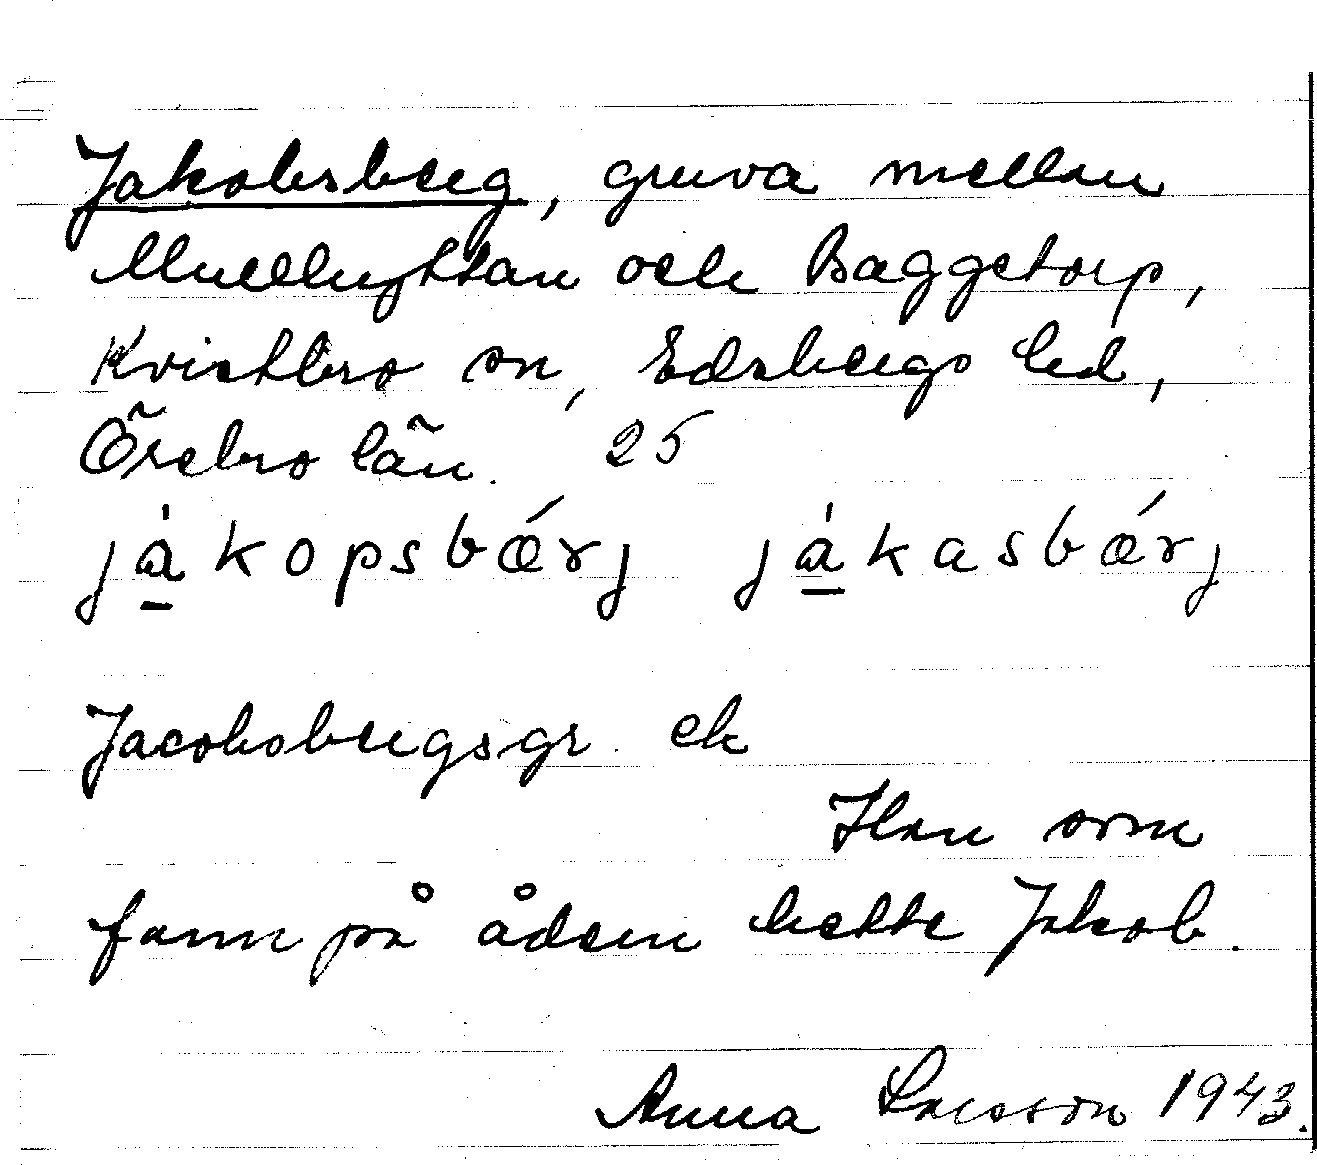 Jakobsberg, gruva mellan
Mullhyttan och Baggetorp,
Kvistbro sn, Edsbergs hd,
Örebro län. 25
jàkopsbǽrj jàkasbǽrj
Jacobsbergsgr. ek
Han som
fann på ådern hette Jakob.
Anna Larsson 1943.